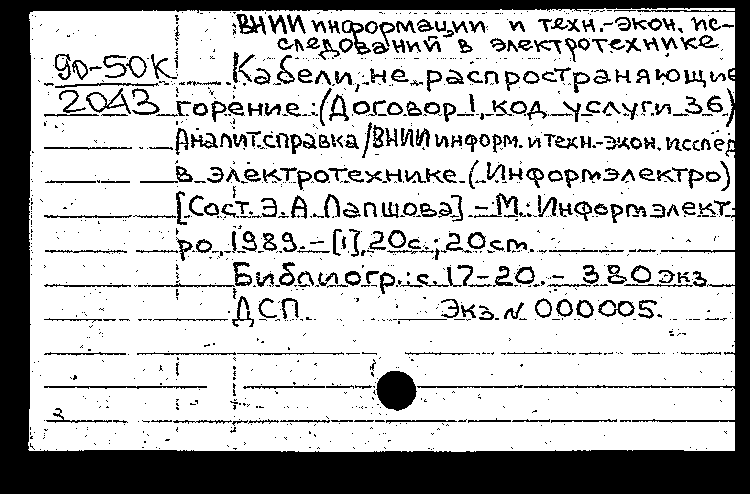 ВНИИ информации и техн.-экон. ис-
следований в электротехнике
90-50К
2043
Кабели, не распространяющие
горение: (Договор 1, код услуги 36)
Аналит.справка/ВНИИ информ. и техн.-экон. исслед
в электротехнике (Информэлектро)
[Сост. Э.А. Лапшова] - М.: Информэлект-
ро, 1989. - [1], 20с.; 20см.
Библиогр.: с. 17-20. - 380 экз
ДСП. Экз. N 000005.
2